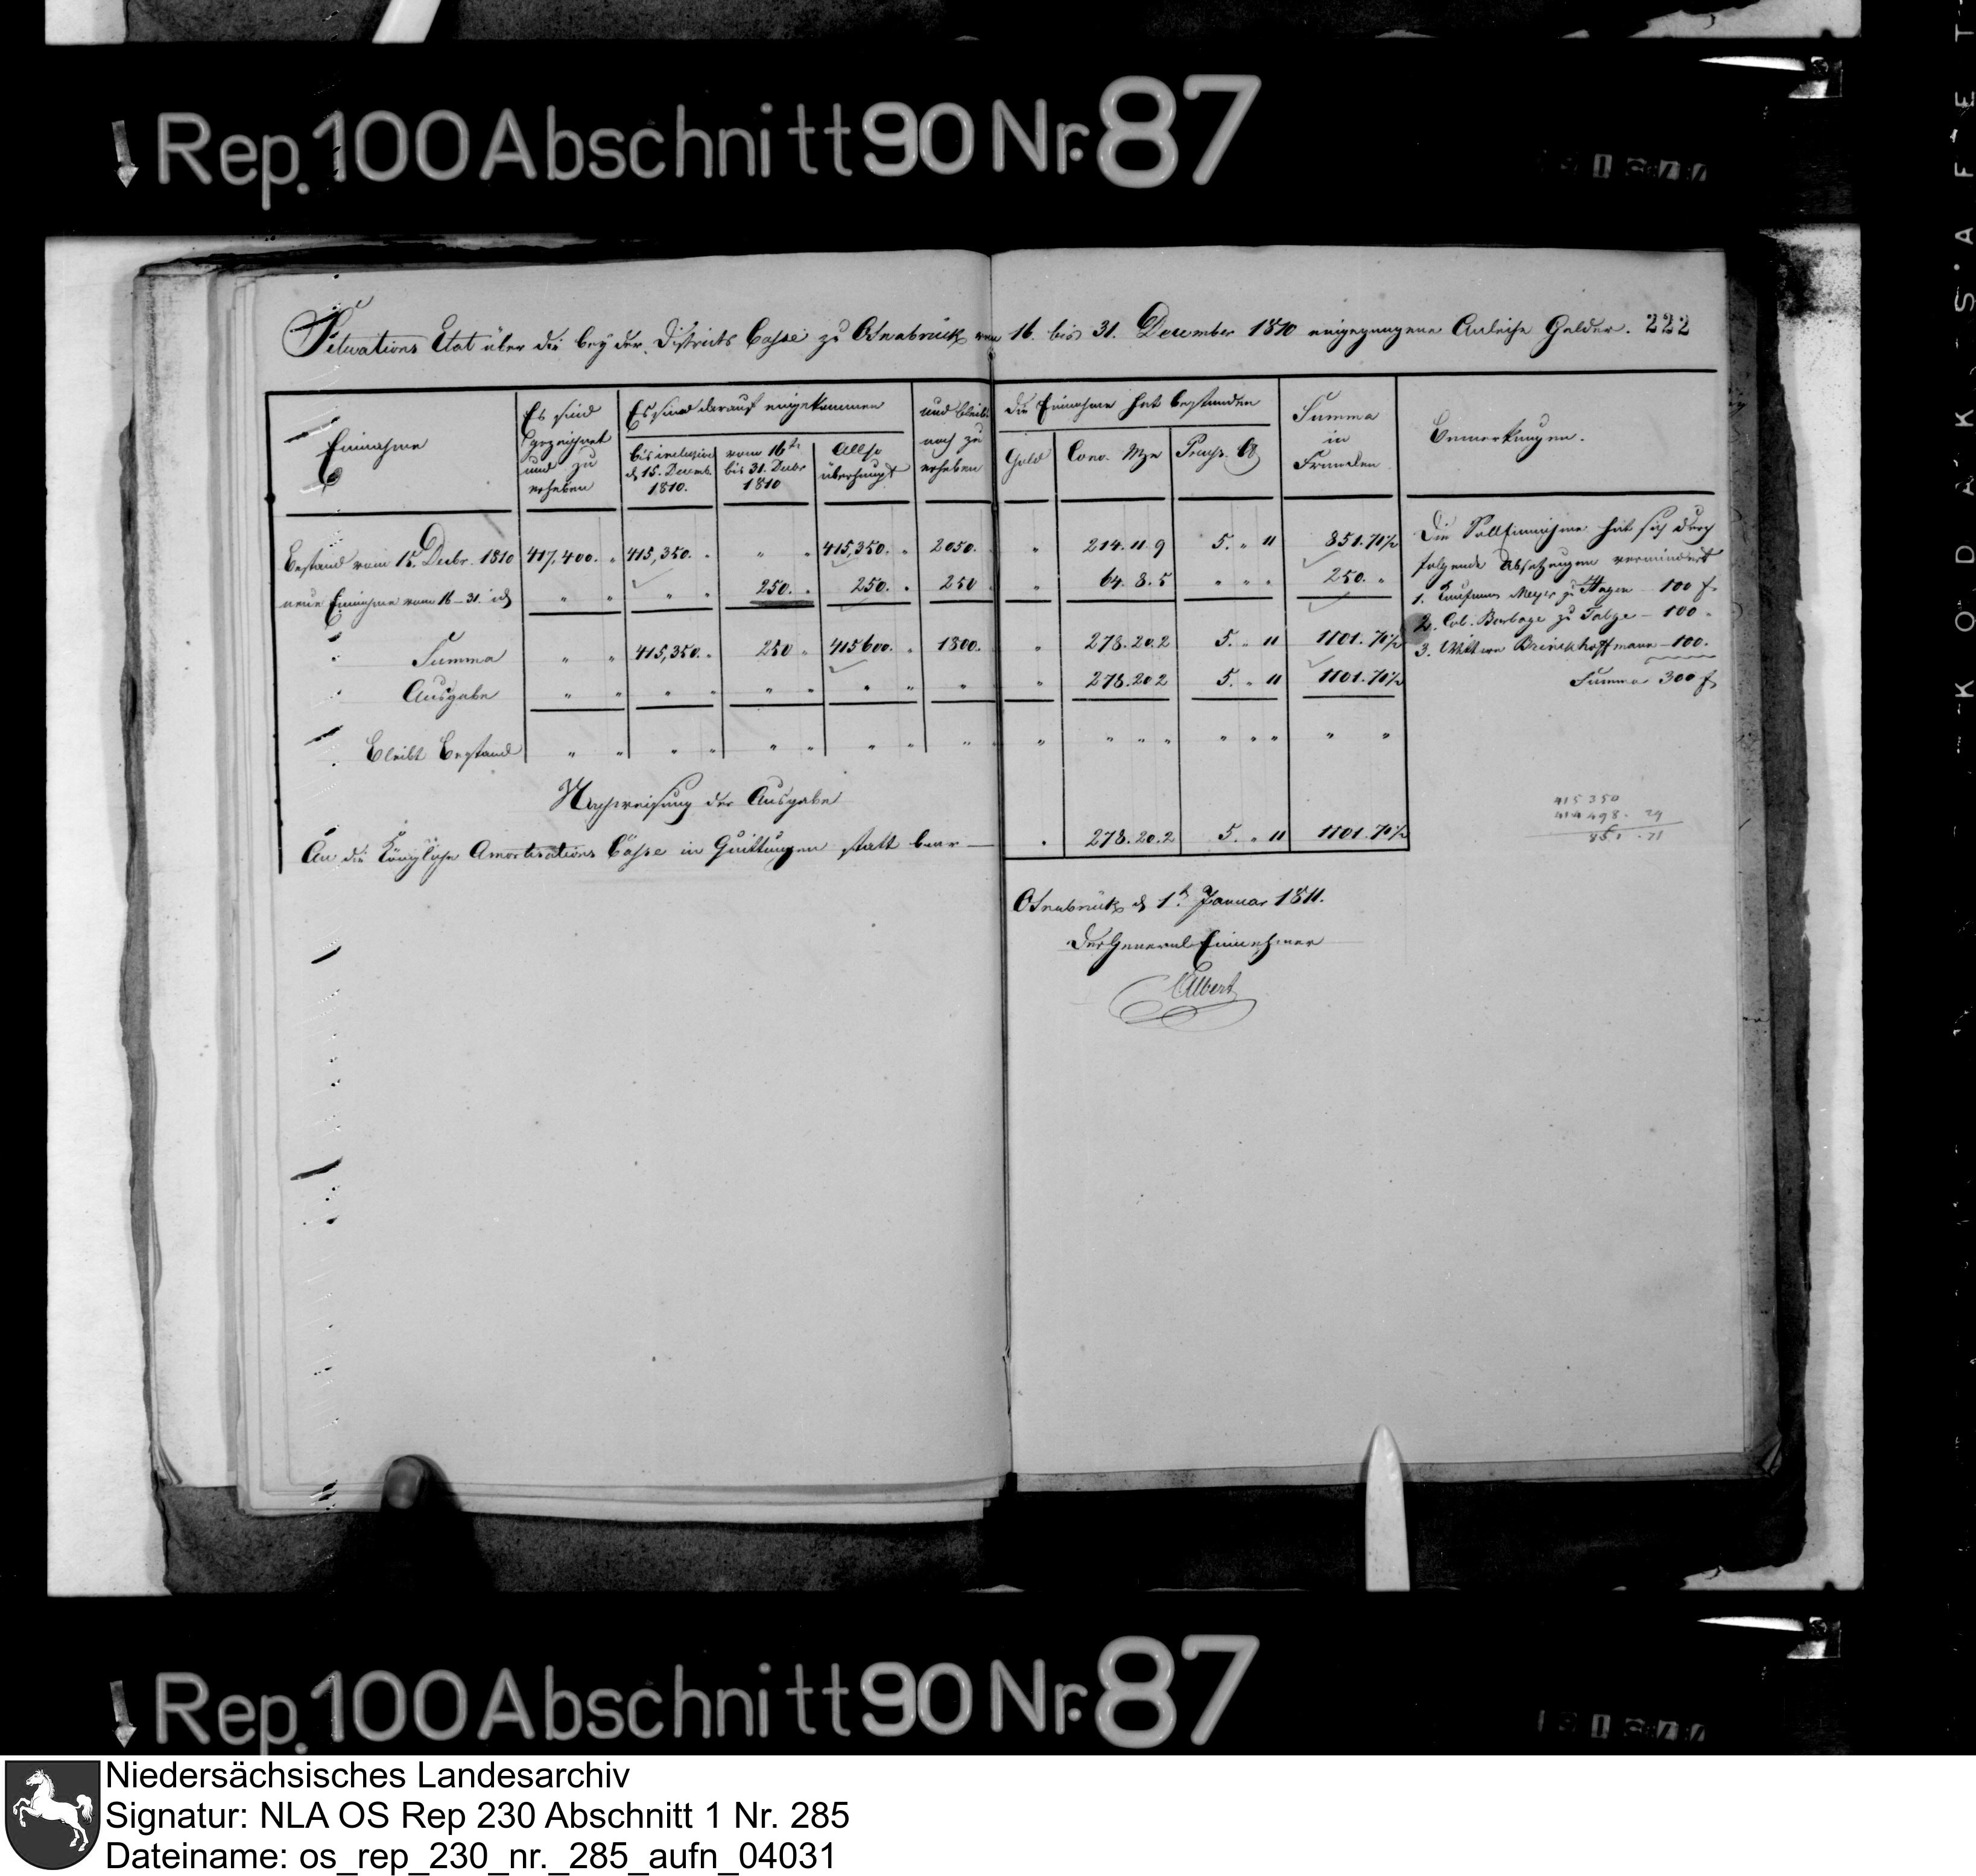 Rep. 100 Abschnitt 90 Nr. 87
Situations Etat über die bey der Districts Casse zu Osnabrück vom 16. bis 31. December 1810 eingegangene Anleihe Gelder. 222
Einnahme
Es sind gezeichnet und zu erheben
Es sind darauf eingekommen
bis inclusive d 15. Decemb. 1810.
vom 16ten bis 31. Decbr 1810
Allso überhaupt
und bleibt noch zu erheben
Die Einnahme hat bestanden
Gold
Conv. Mze
Preuss. Ct
Summa in Franken
Bemerkungen.
Bestand vom 15. Decbr. 1810 417,400. " 415,350. " " " 415,350. " 2050. " 214. 11. 9 5. " 11 851. 70½
neue Einnahme vom 16–31. id " " " " 250. " 250. " 250 " 64. 8. 5 " " " 250. "
Summa " " 415,350. " 250 " 415600. " 1800. " 278. 20. 2 5. " 11 1101. 70½
Ausgabe " " " " " " " " " " 278. 20. 2 5. " 11 1101. 70½
Bleibt Bestand " " " " " " " " " " " " " " " " " "
Die Solleinnahme hat sich durch
folgende Absetzungen vermindert
1. Kaufmann Meyer zu Hagen – 100 f.
2. Col. Borlage zu Talge – 100.
3. Wittwe Brinckhoffmann – 100.
Summa 300 f.
Nachweisung der Ausgabe
An die Königliche Amortisations Casse in Quittungen statt baar — " 278. 20. 2 5. " 11 1101. 70½
415 350
414 498. 29
851. 71
Osnabrück d 1t Januar 1811.
Der General Einnehmer
Albert
Rep. 100 Abschnitt 90 Nr. 87
Niedersächsisches Landesarchiv
Signatur: NLA OS Rep 230 Abschnitt 1 Nr. 285
Dateiname: os_rep_230_nr._285_aufn_04031